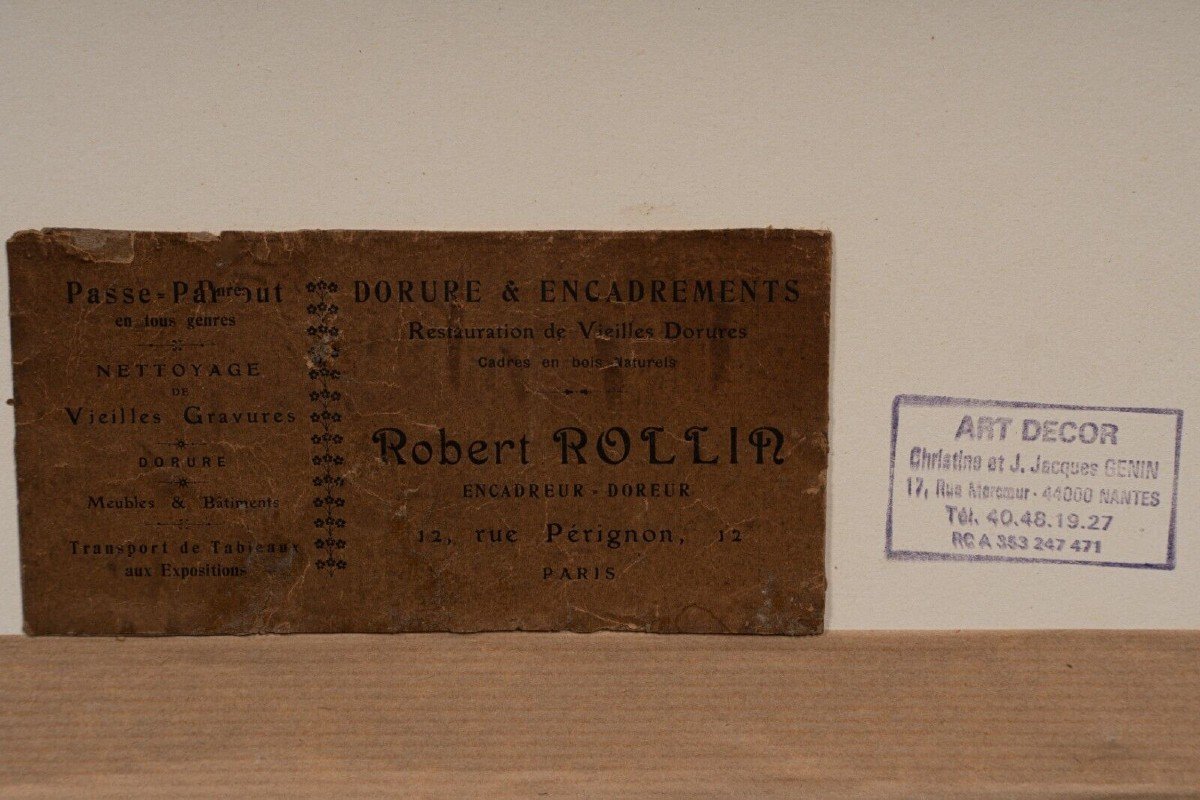 Passe-Partout
en tous genres
NETTOYAGE
DE
Vieilles Gravures
DORURE
Meubles & Bâtiments
Transport de Tableaux
aux Expositions
DORURE & ENCADREMENTS
Restauration de Vieilles Dorures
Cadres en bois Naturels
Robert ROLLIN
ENCADREUR - DOREUR
12, rue Pérignon, 12
PARIS
ART DECOR
Christine et J. Jacques GENIN
17, Rue Mercœur - 44000 NANTES
Tél. 40.48.19.27
RC A 353 247 471